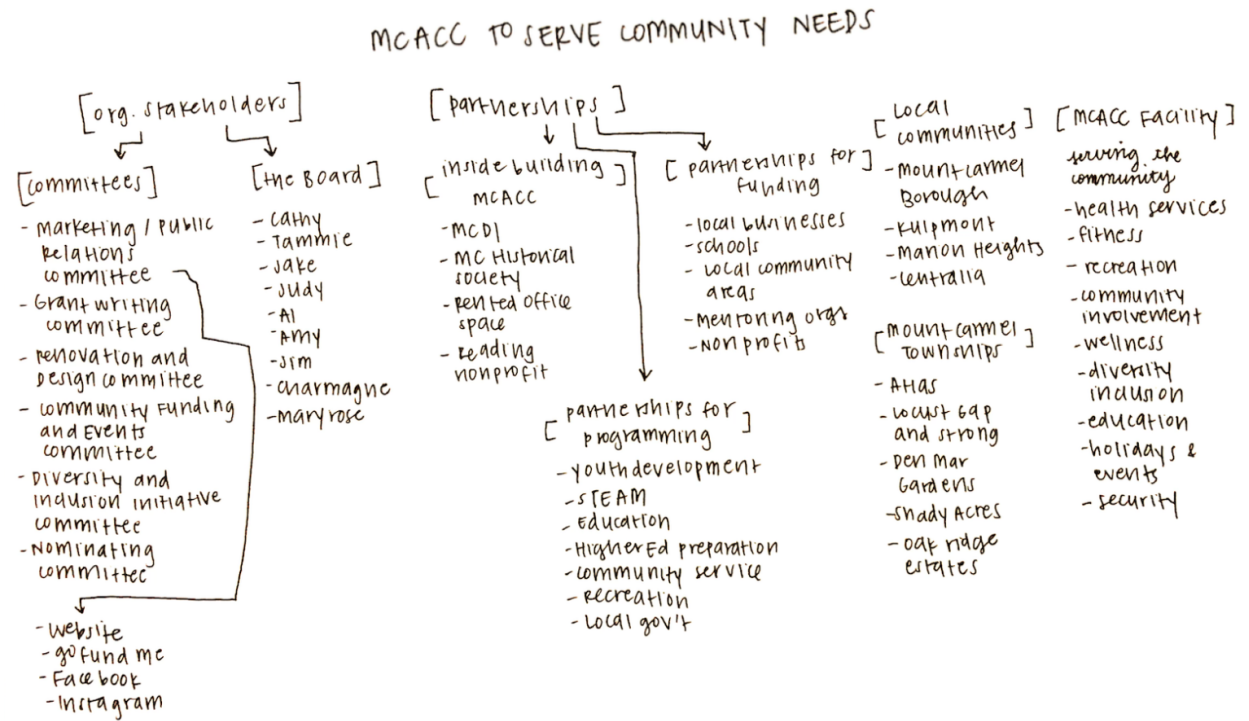 MCACC TO SERVE COMMUNITY NEEDS
[org. stakeholders]
[committees]
- marketing / public
relations
committee
- Grant writing
committee
- renovation and
design committee
- community Funding
and Events
committee
- Diversity and
inclusion initiative
committee
- Nominating
committee
- website
- go fund me
- Facebook
- Instagram
[the Board]
- cathy
- Tammie
- Jake
- Judy
- Al
- Amy
- Jim
- charmagne
- maryrose
[partnerships]
[inside building
MCACC]
- MCDI
- MC Historical
society
- Rented Office
space
- Reading
nonprofit
[partnerships for
programming]
- youth development
- STEAM
- Education
- Higher Ed preparation
- community service
- Recreation
- Local gov't
[partnerships for
funding]
- local businesses
- schools
- Local community
areas
- Mentoring orgs
- Nonprofits
[Local
communities]
- mount carmel
Borough
- Kulpmont
- Marion Heights
- Centralia
[mount carmel
Townships]
- Atlas
- Locust Gap
and strong
- Den Mar
Gardens
- Shady Acres
- Oak ridge
estates
[MCACC Facility]
serving the
community
- health services
- fitness
- recreation
- community
involvement
- wellness
- diversity
inclusion
- education
- holidays &
events
- security